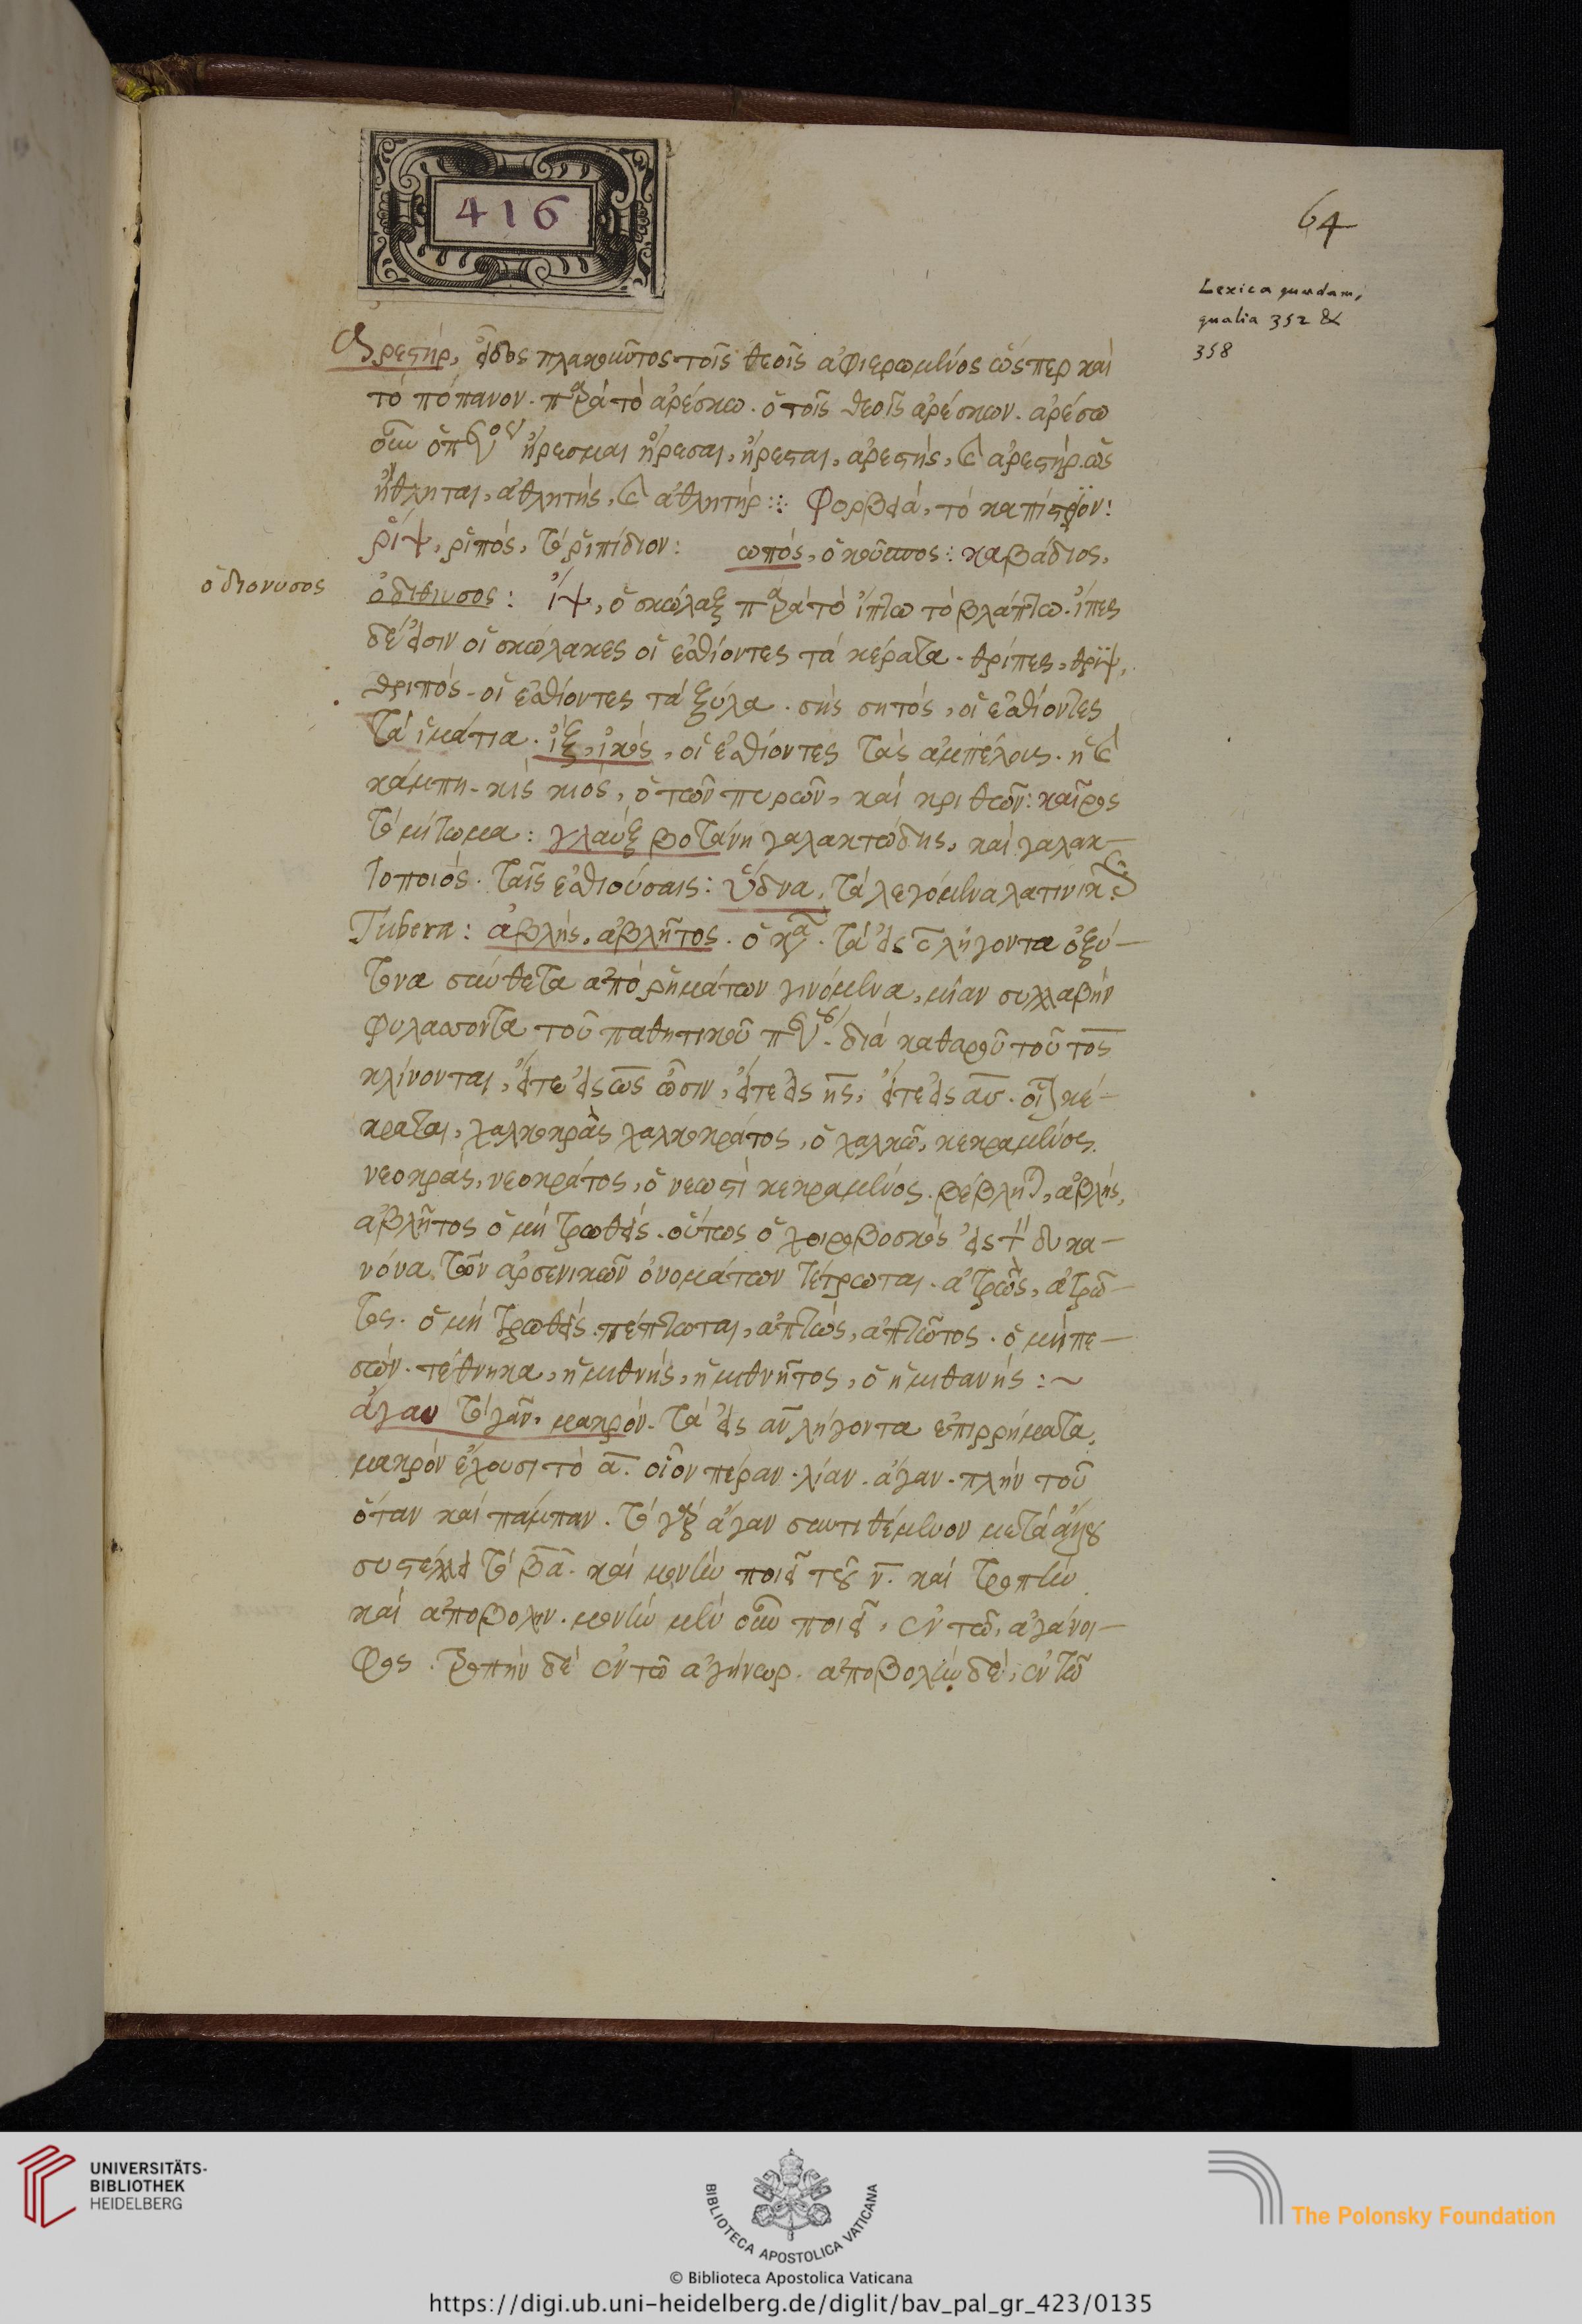 416
64
Lexica quædam,
qualia 352 &
358
Ἀρεστήρ, εἶδος πλακοῦντος τοῖς θεοῖς ἀφιερωμένος ὥσπερ καὶ
τὸ πόπανον. παρὰ τὸ ἀρέσκω. ὁ τοῖς θεοῖς ἀρέσκων. ἀρέσω
ἤρεσμαι ἤρεσαι, ἤρεσται, ἀρεστής, καὶ ἀρεστήρ. ὡς
ἤθληται, ἀθλητής, καὶ ἀθλητήρ: φορβειά, τὸ καπίστριον:
ῥίψ, ῥιπός, τὸ ῥιπίδιον: ὠπός, ὁ καβάδιος,
ὁ διονυσος
ὁ διόνυσος: ἴψ, ὁ σκώληξ παρὰ τὸ ἵπτω τὸ βλάπτω. ἵπες
δέ εἰσιν οἱ σκώληκες οἱ ἐσθίοντες τὰ κέρατα. θρίπες, θρίψ,
θριπός. οἱ ἐσθίοντες τὰ ξύλα. σής σητός, οἱ ἐσθίοντες
τὰ ἱμάτια. ἴξ, ἰκός, οἱ ἐσθίοντες τὰς ἀμπέλους. ἢ καὶ
κάμπη. κίς κιός, ὁ τῶν πυρῶν, καὶ κριθῶν: καῖρος
τὸ μίτωμα: γλαύξ βοτάνη γαλακτώδης, καὶ γαλακ-
τοποιός. ταῖς ἐσθιούσαις: ὕδνα, τὰ λεγόμενα λατινικῶς
Tubera: ἀβλής, ἀβλῆτος. ὁ κα. τὰ εἰς ς λήγοντα ὀξύ-
τονα σύνθετα ἀπὸ ῥημάτων γινόμενα, μίαν συλλαβὴν
φυλάσσοντα τοῦ παθητικοῦ διὰ καθαροῦ τοῦ τος
κλίνονται, εἴτε εἰς ως ὦσιν, εἴτε εἰς ης, εἴτε εἰς ας. οἷον κέ-
κραται, χαλκοκράς χαλκοκρᾶτος, ὁ χαλκῷ, κεκραμένος.
νεοκράς, νεοκρᾶτος, ὁ νεωστὶ κεκραμένος. βέβληται, ἀβλής,
ἀβλῆτος ὁ μὴ τρωθείς. οὕτως ὁ χοιροβοσκός εἰς τὸν κα-
νόνα. τῶν ἀρσενικῶν ὀνομάτων τέτρωται. ἀτρώς, ἀτρῶ-
τος. ὁ μὴ τρωθείς. πέπτωται, ἀπτώς, ἀπτῶτος. ὁ μὴ πε-
σών. τέθνηκα, ἡμιθνής, ἡμιθνῆτος, ὁ ἡμιθανής:~
ἄγαν τὸ γαν, μακρόν. τὰ εἰς αν λήγοντα ἐπιρρήματα,
μακρὸν ἔχουσι τὸ α. οἷον πέραν. λίαν. ἄγαν. πλὴν τοῦ
ὅταν καὶ πάμπαν. τὸ γὰρ ἄγαν συντιθέμενον μετὰ
συστέλλει τὸ α. καὶ μονὴν ποιεῖ τοῦ ν. καὶ τροπὴν
καὶ ἀποβολήν. μονὴν μὲν οὖν ποιεῖ, ἐν τῷ, ἀγάννι-
φος. τροπὴν δὲ ἐν τῷ ἀγήνωρ. ἀποβολὴν δέ, ἐν τῷ
UNIVERSITÄTS-
BIBLIOTHEK
HEIDELBERG
BIBLIOTECA APOSTOLICA VATICANA
The Polonsky Foundation
© Biblioteca Apostolica Vaticana
https://digi.ub.uni-heidelberg.de/diglit/bav_pal_gr_423/0135